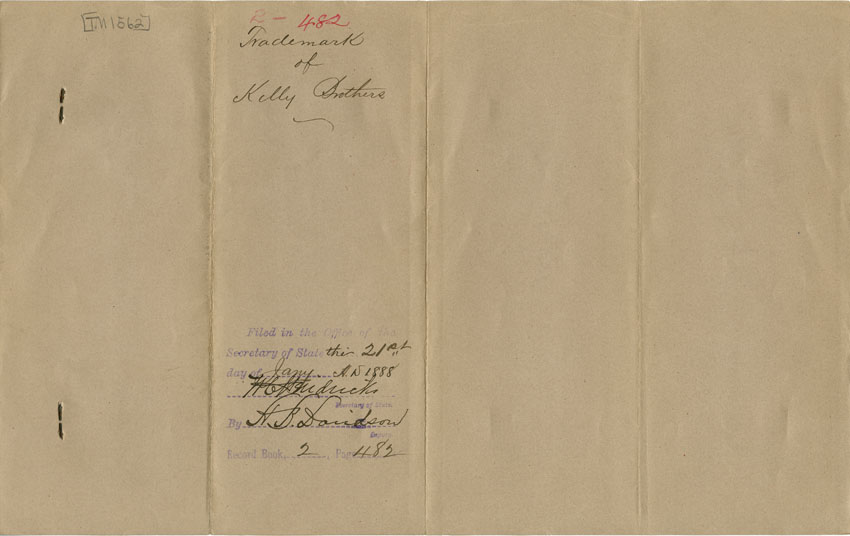 TM1562
2 - 482
Trademark
of
Kelly Brothers
Filed in the Office of the
Secretary of State this 21st
day of Jany A.D 1888
W C Hendricks
Secretary of State.
By H. B. Davidson
Deputy.
Record Book, 2, Page 482